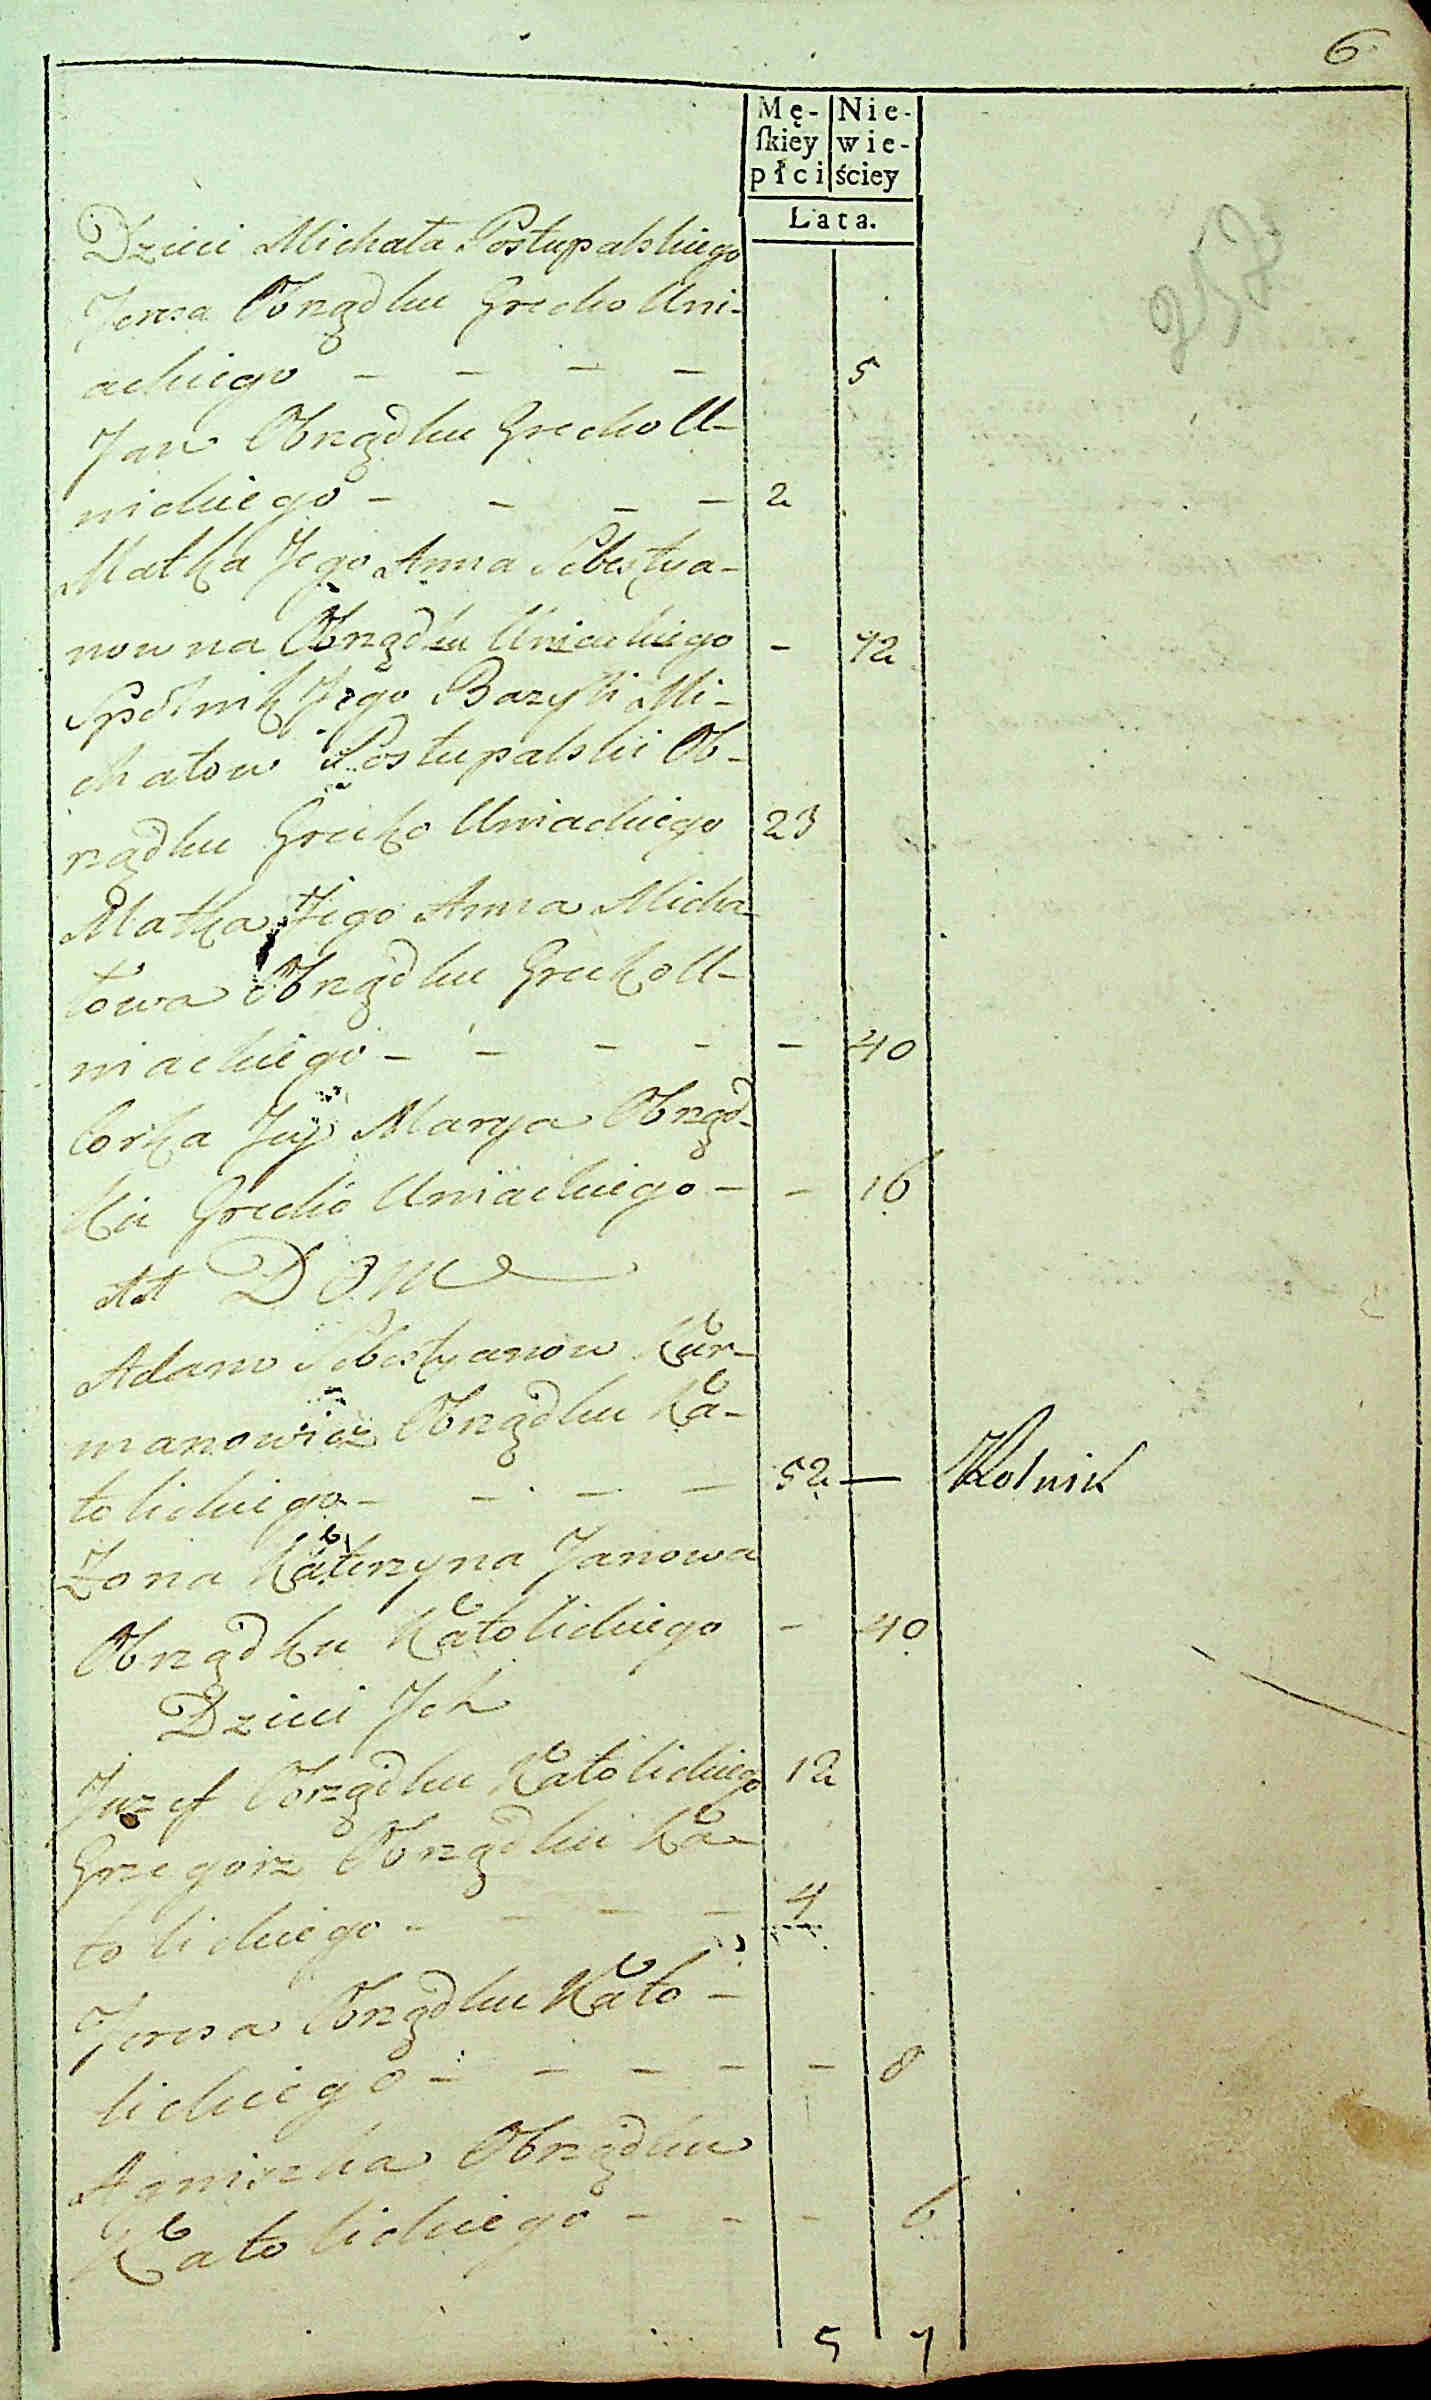 6
Mę-
ſkiey
płci
Nie-
wie-
ściey
Lata.
Dzieci Michała Postupalskiego
Teresa Obrządku Grecko Uni-
ackiego - - - - 5
Jan Obrządku Grecko U-
nickiego - - - - 2
Matka Jego Anna Sebestya-
nowna Obrządku Uniackiego - 72
Spólnik Jego Bazyli Mi-
chałow Postupalski Ob-
rządku Grecko Uniackiego 23
Matka Jego Anna Micha-
łowa Obrządku Grecko U-
niackiego - - - - - 40
Corka Jey Marya Obrząd-
ku Grecko Uniackiego - - 16
Dom
Adam Sebestyanow Kur-
manowicz Obrządku Ka-
tolickiego - - - - 52 — Rolnik
Żona Katerzyna Janowa
Obrządku Katolickiego - 40
Dzieci Jch
Juzef Obrządku Katolickiego 12
Grzegorz Obrządku Ka-
tolickiego - - - - 4
Teresa Obrządku Kato-
lickiego - - - - - 8
Agniszka Obrządku
Katolickiego - - - 6
5 7